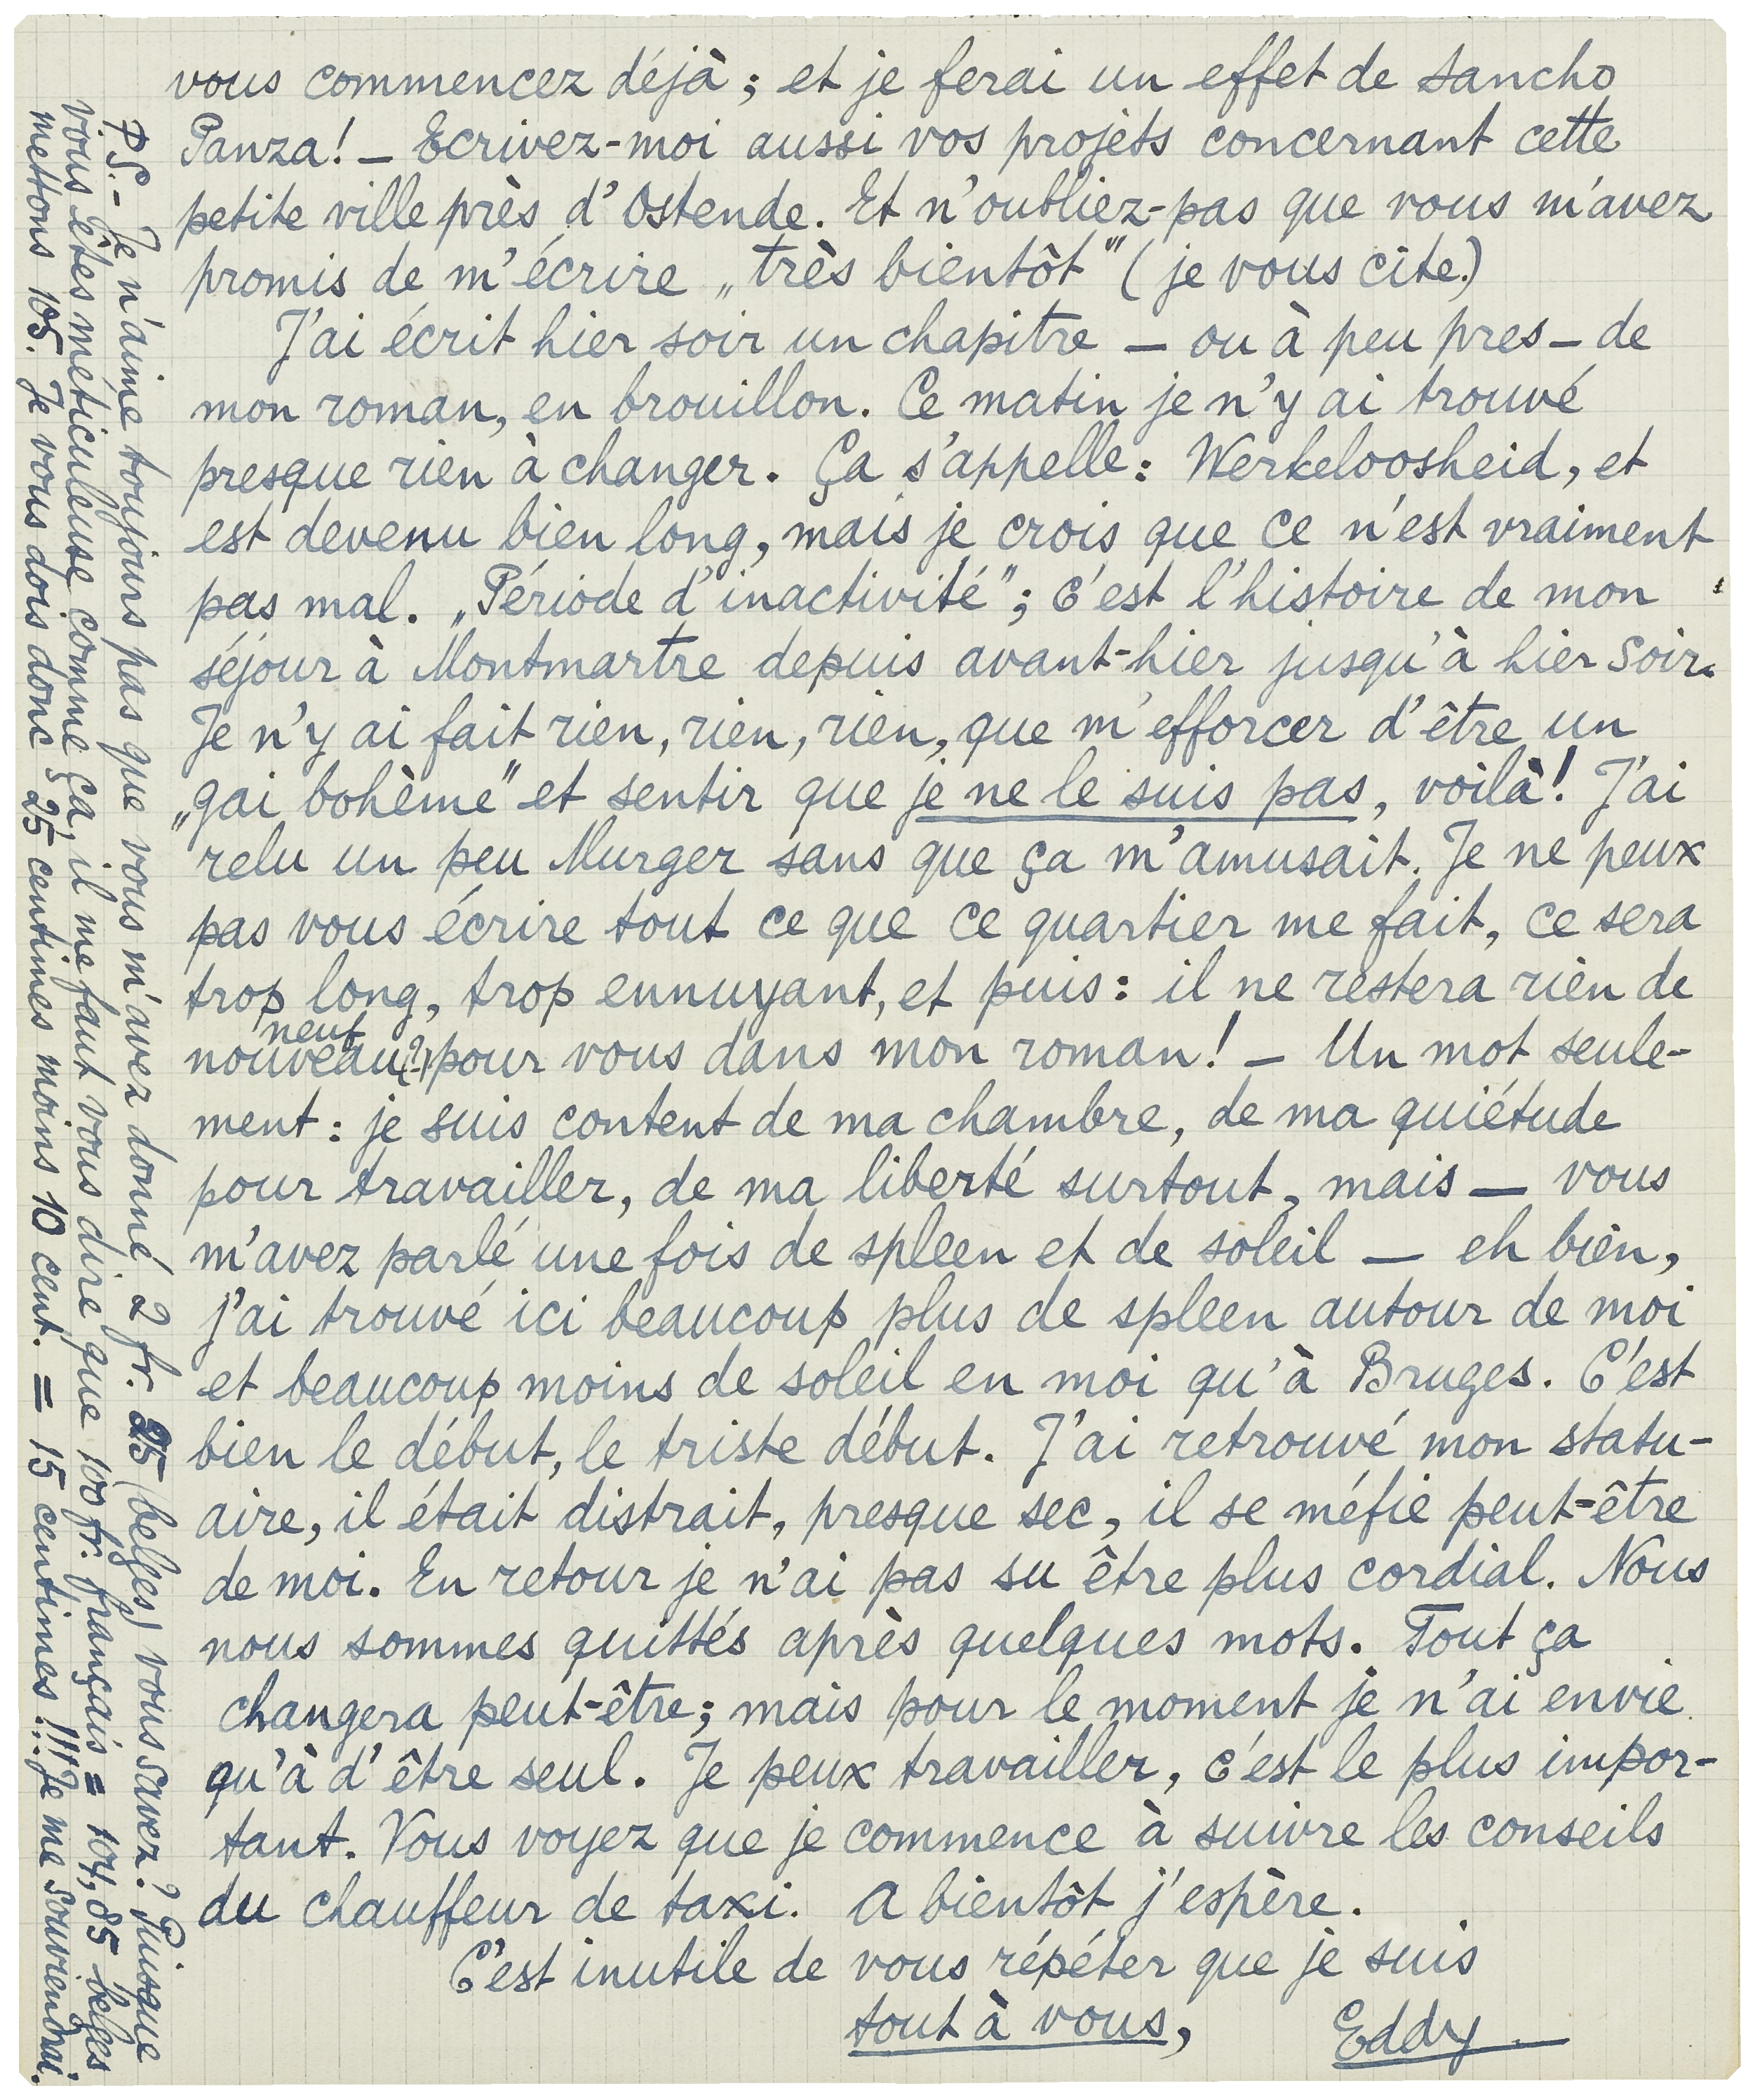 vous commencez déjà ; et je ferai un effet de Sancho
Panza! — Ecrivez-moi aussi vos projets concernant cette
petite ville près d'Ostende. Et n'oubliez-pas que vous m'avez
promis de m'écrire „très bientôt" (je vous cite.)
J'ai écrit hier soir un chapitre — ou à peu pres — de
mon roman, en brouillon. Ce matin je n'y ai trouvé
presque rien à changer. Ça s'appelle : Werkeloosheid, et
est devenu bien long, mais je crois que ce n'est vraiment
pas mal. „Période d'inactivité" ; c'est l'histoire de mon
séjour à Montmartre depuis avant-hier jusqu'à hier soir.
Je n'y ai fait rien, rien, rien, que m'efforcer d'être un
„gai bohème" et sentir que je ne le suis pas, voilà! J'ai
relu un peu Murger sans que ça m'amusait. Je ne peux
pas vous écrire tout ce que ce quartier me fait, ce sera
trop long, trop ennuyant, et puis : il ne restera rien de
neuf
nouveau (?) pour vous dans mon roman! — Un mot seule-
ment : je suis content de ma chambre, de ma quiétude
pour travailler, de ma liberté surtout, mais — vous
m'avez parlé une fois de spleen et de soleil — eh bien,
j'ai trouvé ici beaucoup plus de spleen autour de moi
et beaucoup moins de soleil en moi qu'à Bruges. C'est
bien le début, le triste début. J'ai retrouvé mon statu-
aire, il était distrait, presque sec, il se méfie peut-être
de moi. En retour je n'ai pas su être plus cordial. Nous
nous sommes quittés après quelques mots. Tout ça
changera peut-être ; mais pour le moment je n'ai envie
qu'à d'être seul. Je peux travailler, c'est le plus impor-
tant. Vous voyez que je commence à suivre les conseils
du chauffeur de taxi. A bientôt j'espère.
C'est inutile de vous répéter que je suis
tout à vous,
Eddy
P.S. - Je n'aime toujours pas que vous m'avez donné 2 fr. 25 (belges) vous savez? Puisque
vous êtes méticuleuse comme ça, il me faut vous dire que 100 fr. français = 104,85 belges
mettons 105. Je vous dois donc 25 centimes moins 10 cent. = 15 centimes!!! Je me souviendrai.